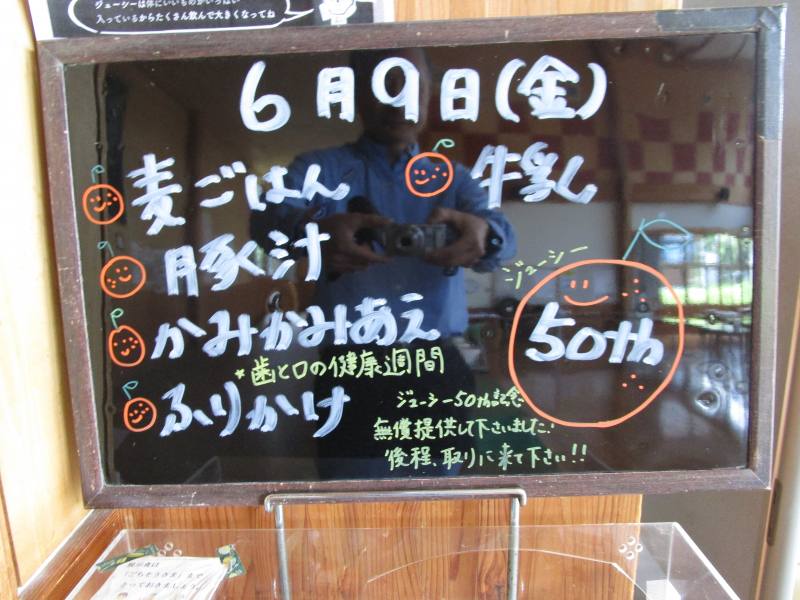 ジューシーは体にいいものがいっぱい
入っているからたくさん飲んで大きくなってね
6月9日(金)
麦ごはん
牛乳
豚汁
かみかみあえ
*歯と口の健康週間
ふりかけ
ジューシー
50th
ジューシー50th記念
無償提供して下さいました!
後程、取りに来て下さい!!
「ごちそうさま」まで
とっておきましょう。